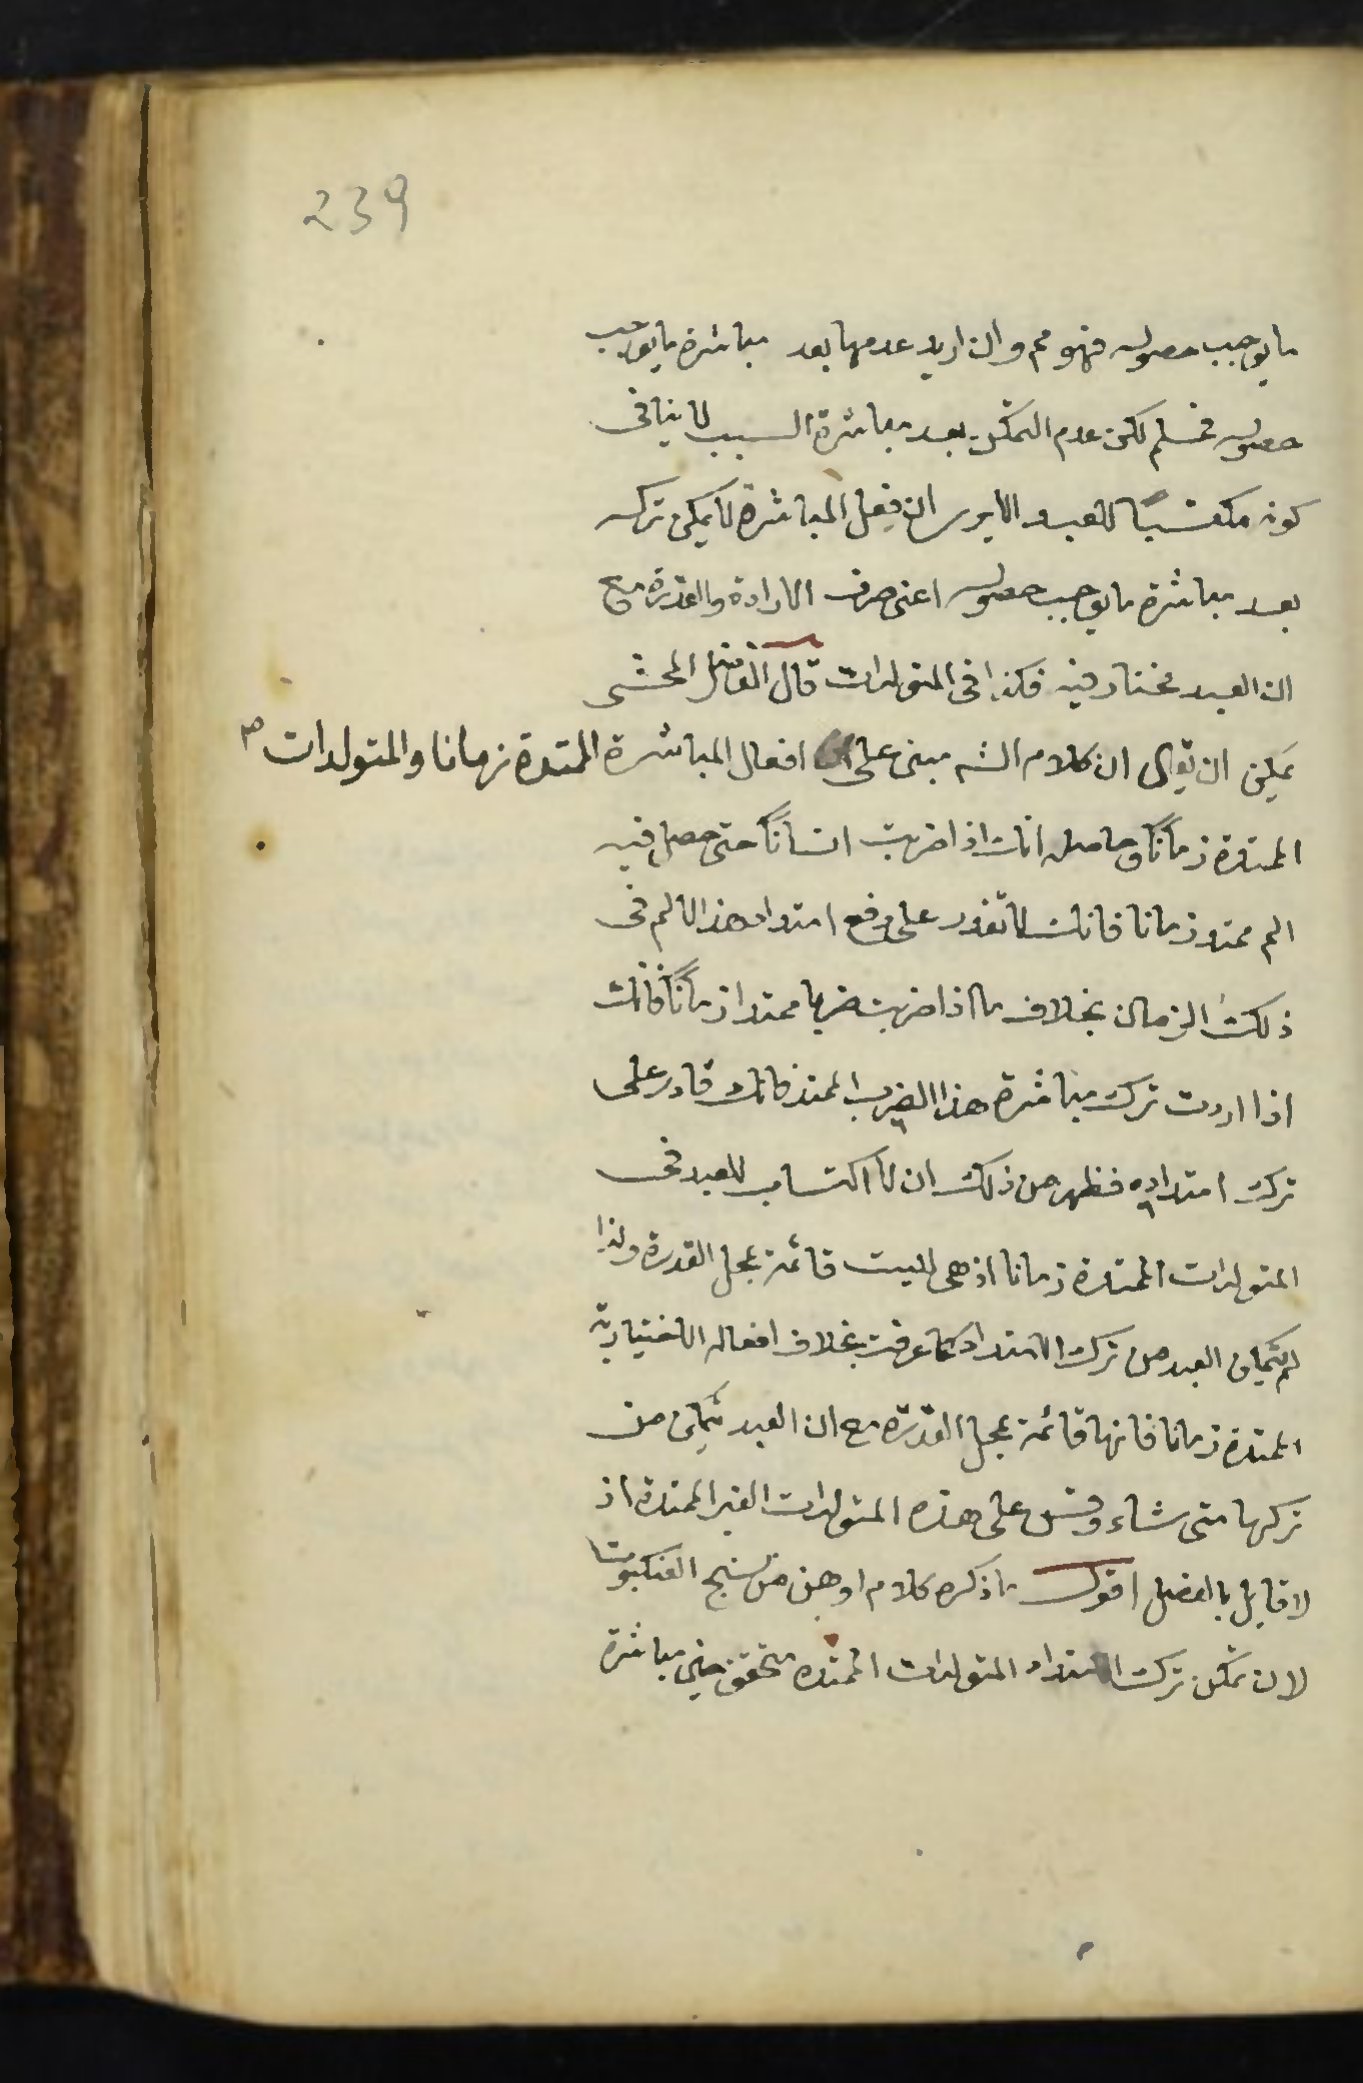 239
ما يوجب حصوله فهو مم وان اريد عدمها بعد مباشرة ما يوجب
حصوله فمسلم لكن عدم التمكن بعد مباشرة السبب لا ينافى
كونه مكتسبًا للعبد الا يرى ان فعل المباشرة لا يمكن تركه
بعد مباشرة ما يوجب حصوله اعنى صرف الارادة والقدرة مع
ان العبد مختار فيه فكذا فى المتولدات قال الفاضل المحشى
يمكن ان يقال ان كلام الشم مبنى على افعال المباشرة الممتدة زمانا والمتولدات صم
الممتدة زمانًا وحاصله انك اذا ضربت انسانًا حتى حصل فيه
الم ممتد زمانا فانك لا تقدر على دفع امتداد هذا الالم فى
ذلك الزمان بخلاف ما اذا ضربت ضربا ممتدا زمانًا فانك
اذا اردت ترك مباشرة هذا الضرب الممتد فانك قادر على
ترك امتداده فظهر من ذلك ان لا اكتساب للعبد فى
المتولدات الممتدة زمانا اذ هى ليست قائمة بمحل القدرة ولذا
لم يتمكن العبد من ترك الامتداد كما عرفت بخلاف افعاله الاختيارية
الممتدة زمانا فانها قائمة بمحل القدرة مع ان العبد يتمكن من
تركها متى شاء وقس على هذه المتولدات الغير الممتدة اذ
لا قايل بالفصل اقول ما ذكره كلام اوهن من نسج العنكبوت
لان تمكن ترك امتداد المتولدات الممتده متحقق حين مباشرة